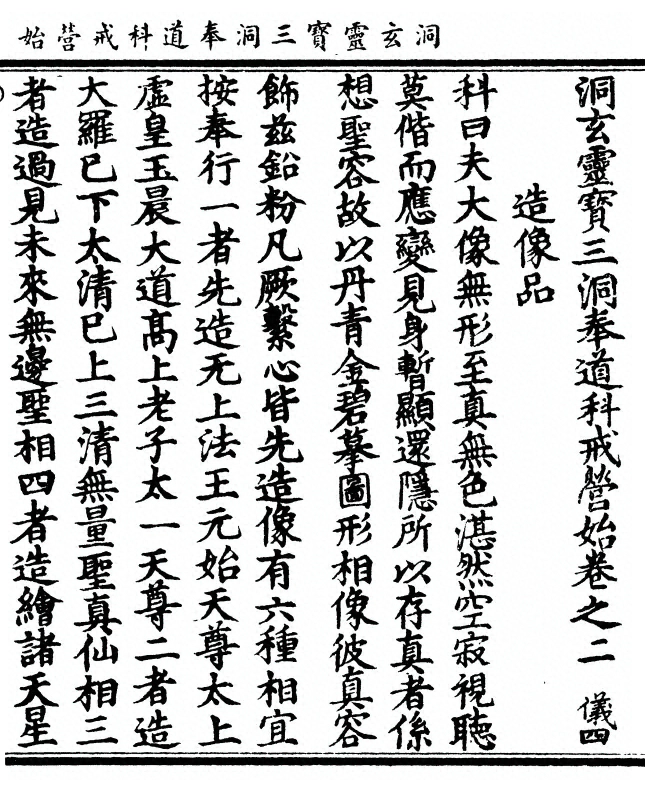 洞玄靈寶三洞奉道科戒營始
洞玄靈寶三洞奉道科戒營始卷之二 儀四
造像品
科曰夫大像無形至真無色湛然空寂視聽
莫偕而應變見身暫顯還隱所以存真者係
想聖容故以丹青金碧摹圖形相像彼真容
飾兹鉛粉凡厥繫心皆先造像有六種相宜
按奉行一者先造无上法王元始天尊太上
虛皇玉晨大道高上老子太一天尊二者造
大羅已下太清已上三清無量聖真仙相三
者造過見未來無邊聖相四者造繪諸天星